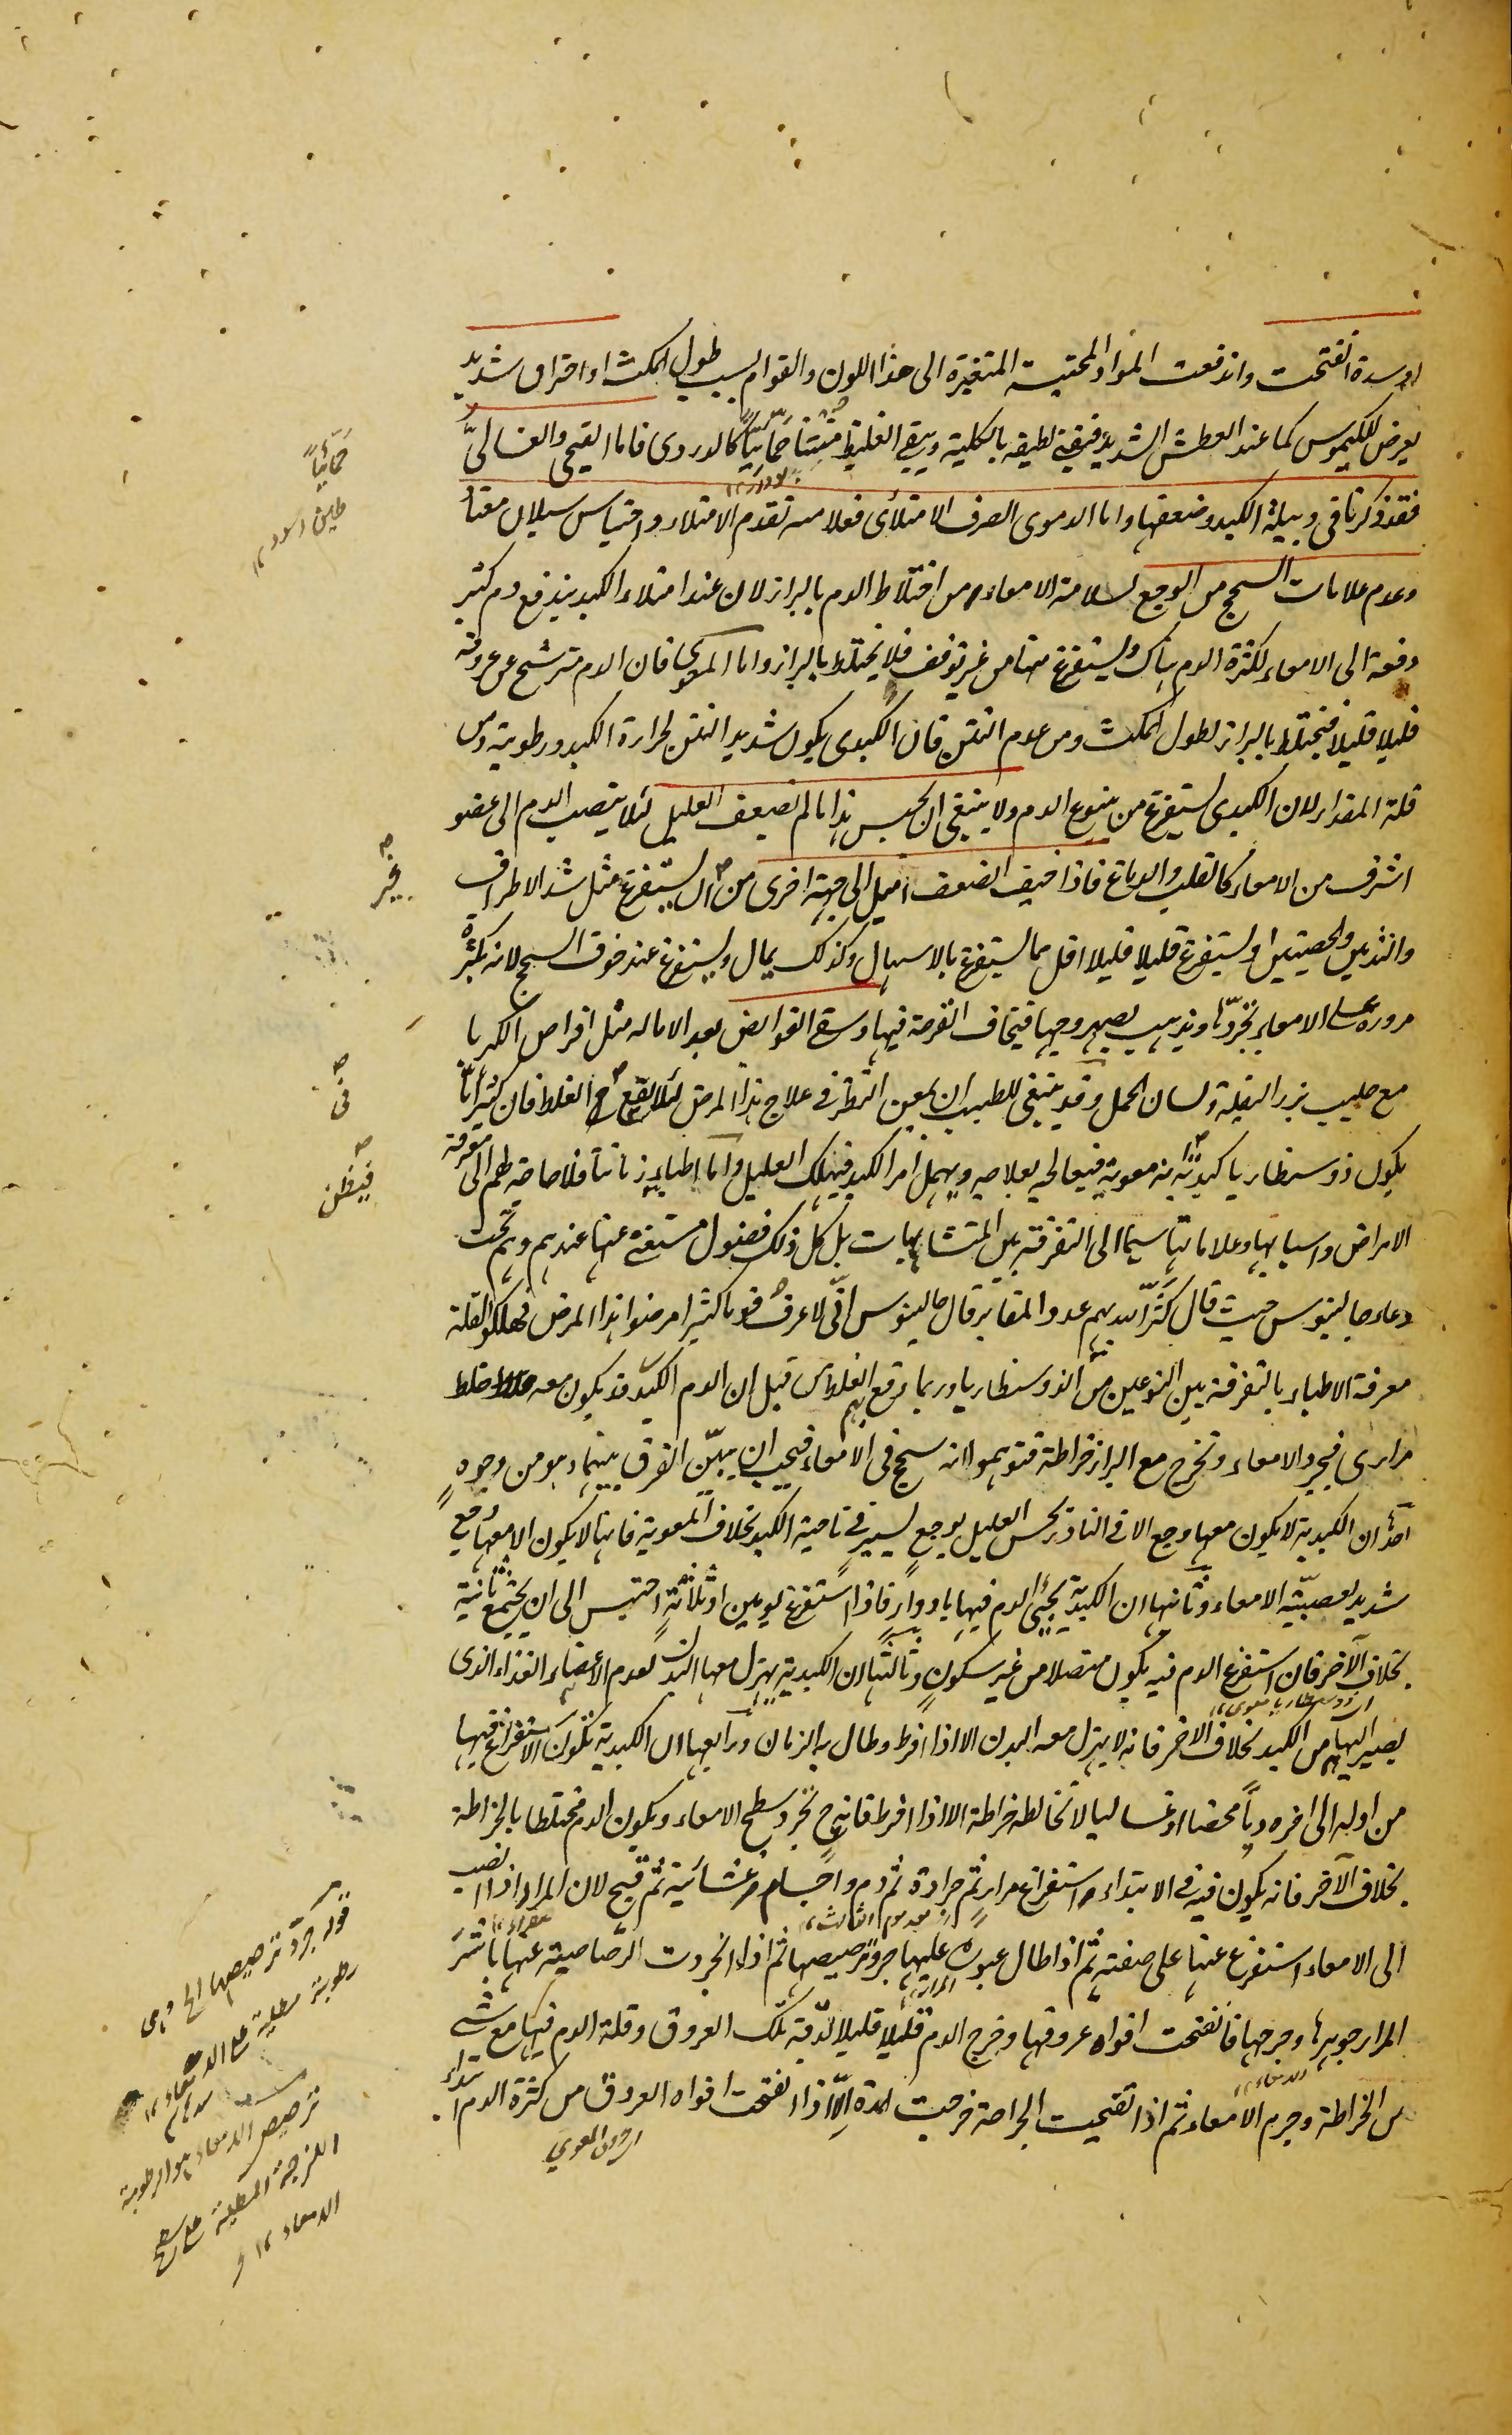 او سدة انفتحت واندفعت المواد المحتبسة المتغيرة الى هذا اللون والقوام بسبب طول المكث او احتراق شديد
يعرض للكيموس كما عند العطش الشديد فيفنى لطيفه بالكلية ويبقى الغليظ منتنا حمائيا كالدردى فاما القيحى والغسالى
فقد ذكرنا فى دبيلة الكبد وضعفها واما الدموى الصرف الامتلائى فعلامته تقدم الامتلاء واحتباس سيلان معتاد
وعدم علامات السحج من الوجع لسلامة الامعاء ومن اختلاط الدم بالبراز لان عند امتلاء الكبد يندفع دم كثير
دفعة الى الامعاء لكثرة الدم هناك ويستفرغ منها من غير توقف فلا يختلط بالبراز واما المعوى فان الدم يترشح من عروقه
قليلا قليلا فيختلط بالبراز لطول المكث ومن عدم النتن فان الكبدى يكون شديد النتن لحرارة الكبد ورطوبته ومن
قلة المقدار لان الكبدى يستفرغ من ينبوع الدم ولا ينبغى ان يحبس هذا ما لم يضعف العليل لئلا ينصب الدم الى عضو
اشرف من الامعاء كالقلب والدماغ فاذا خيف الضعف اميل الى جهة اخرى من ان يستفرغ مثل شد الاطراف
والثديين والخصيتين او يستفرغ قليلا قليلا اقل مما يستفرغ بالاسهال وكذلك يمال ويستفرغ عند خوف السحج لانه بكثرة
مروره على الامعاء يجردها ويذهب بصهروجها فيخاف القرحة فيها وسقى القوابض بعد الامالة مثل اقراص الكهربا
مع حليب بزر البقلة ولسان الحمل وقد ينبغى للطبيب ان يمعن النظر فى علاج هذا المرض لئلا يقع الغلط فان كثيرا ما
يكون ذوسنطاريا كبدية انه معوية فيعالجه بعلاجه ويهمل امر الكبد فيهلك العليل واما اطباء زماننا فلا حاجة لهم الى معرفة
الامراض واسبابها وعلاماتها سيما الى التفرقة بين المتشابهات بل كل ذلك فضول مستغنى عنها عندهم وهم تحت
دعاء جالينوس حيث قال كثر الله بهم عدد المقابر قال جالينوس انى لاعرف قوما كثيرا مرضوا هذا المرض فهلكوا لقلة
معرفة الاطباء بالتفرقة بين النوعين من الذوسنطاريا وربما وقع الغلط من قبل ان الدم الكبدى قد يكون معه خلط
مرارى فيجرد الامعاء وتخرج مع البراز خراطة فتوهموا انه سحج فى الامعاء فيجب ان يبين الفرق بينهما وهو من وجوه
احدها ان الكبدية لا يكون معها وجع الا فى النادر يحس العليل بوجع يسير فى ناحية الكبد بخلاف المعوية فانها لا يكون الا معها وجع
شديد لعصبية الامعاء وثانيها ان الكبدية يجئ الدم فيها بادوار فاذا استفرغ يومين او ثلاثة احتبس الى ان يجتمع ثانية
بخلاف الآخر فان استفرغ الدم فيه يكون متصلا من غير سكون وثالثها ان الكبدية يهزل معها البدن لعدم الاعضاء الغذاء الذى
يصير اليها من الكبد بخلاف الاخر فانه لا يهزل معه البدن الا اذا افرط وطال به الزمان ورابعها ان الكبدية تكون الاستفراغ فيها
من اوله الى اخره دما محضا او غساليا لا تخالطه خراطة الا اذا افرط فانه ح تجرد سطح الامعاء ويكون الدم مختلطا بالخراطة
بخلاف الآخر فانه يكون فيه فى الابتداء استفراغ مرار ثم جرادة ثم دم واجسام غشائية ثم قيح لان المرار اذا انصب
الى الامعاء استفرغ عنها على صفته ثم اذا طال عبوره عليها جرد ترصيصها ثم اذا انجردت الرصاصية عنها باشر
المرار جوهرها وجرحها فانفتحت افواه عروقها وخرج الدم قليلا قليلا لدقة تلك العروق وقلة الدم فيها مع شئ
من الخراطة وجرم الامعاء ثم اذا تقيحت الجراحة خرجت المدة الا اذا انفتحت افواه العروق من كثرة الدم ابتداء
اى دون المعوى
حمائيا
طين اسود ١٢
غير
فى
فيظن
قوله جرد ترصيصها الخ وهى
رطوبة مطلية على الامعاء ١٢
ترصيص الامعاء هو الرطوبة
اللزجة المطلية على سطح
الامعاء ١٢